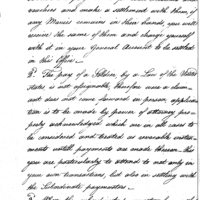 vouchers and make a settlement with them, if
any Monies remains in their hands, you will
receive the same of them and charge yourself
with it in your General Account to be settled
in this Office.
The pay of a Soldier by a Law of the United
States is not assignable, therefore when a claim-
ant does not come forward on person application
is to be made by power of attorney pro-
perly acknowledged which are in all cases to
be considered and treated as revocable instru-
ments until payments are made thereon this
you are particularly to attend to not only in
your own transactions, but also in settling with
the Subordinate paymasters.